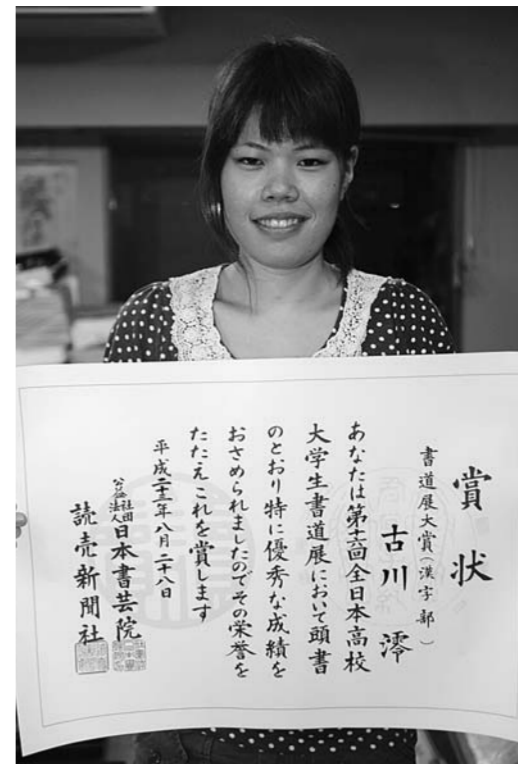 賞状
書道展大賞(漢字部)
古川澪
あなたは第十六回全日本高校
大学生書道展において頭書
のとおり特に優秀な成績を
おさめられましたのでその栄誉を
たたえこれを賞します
平成二十三年八月二十八日
公益社団法人日本書芸院
読売新聞社